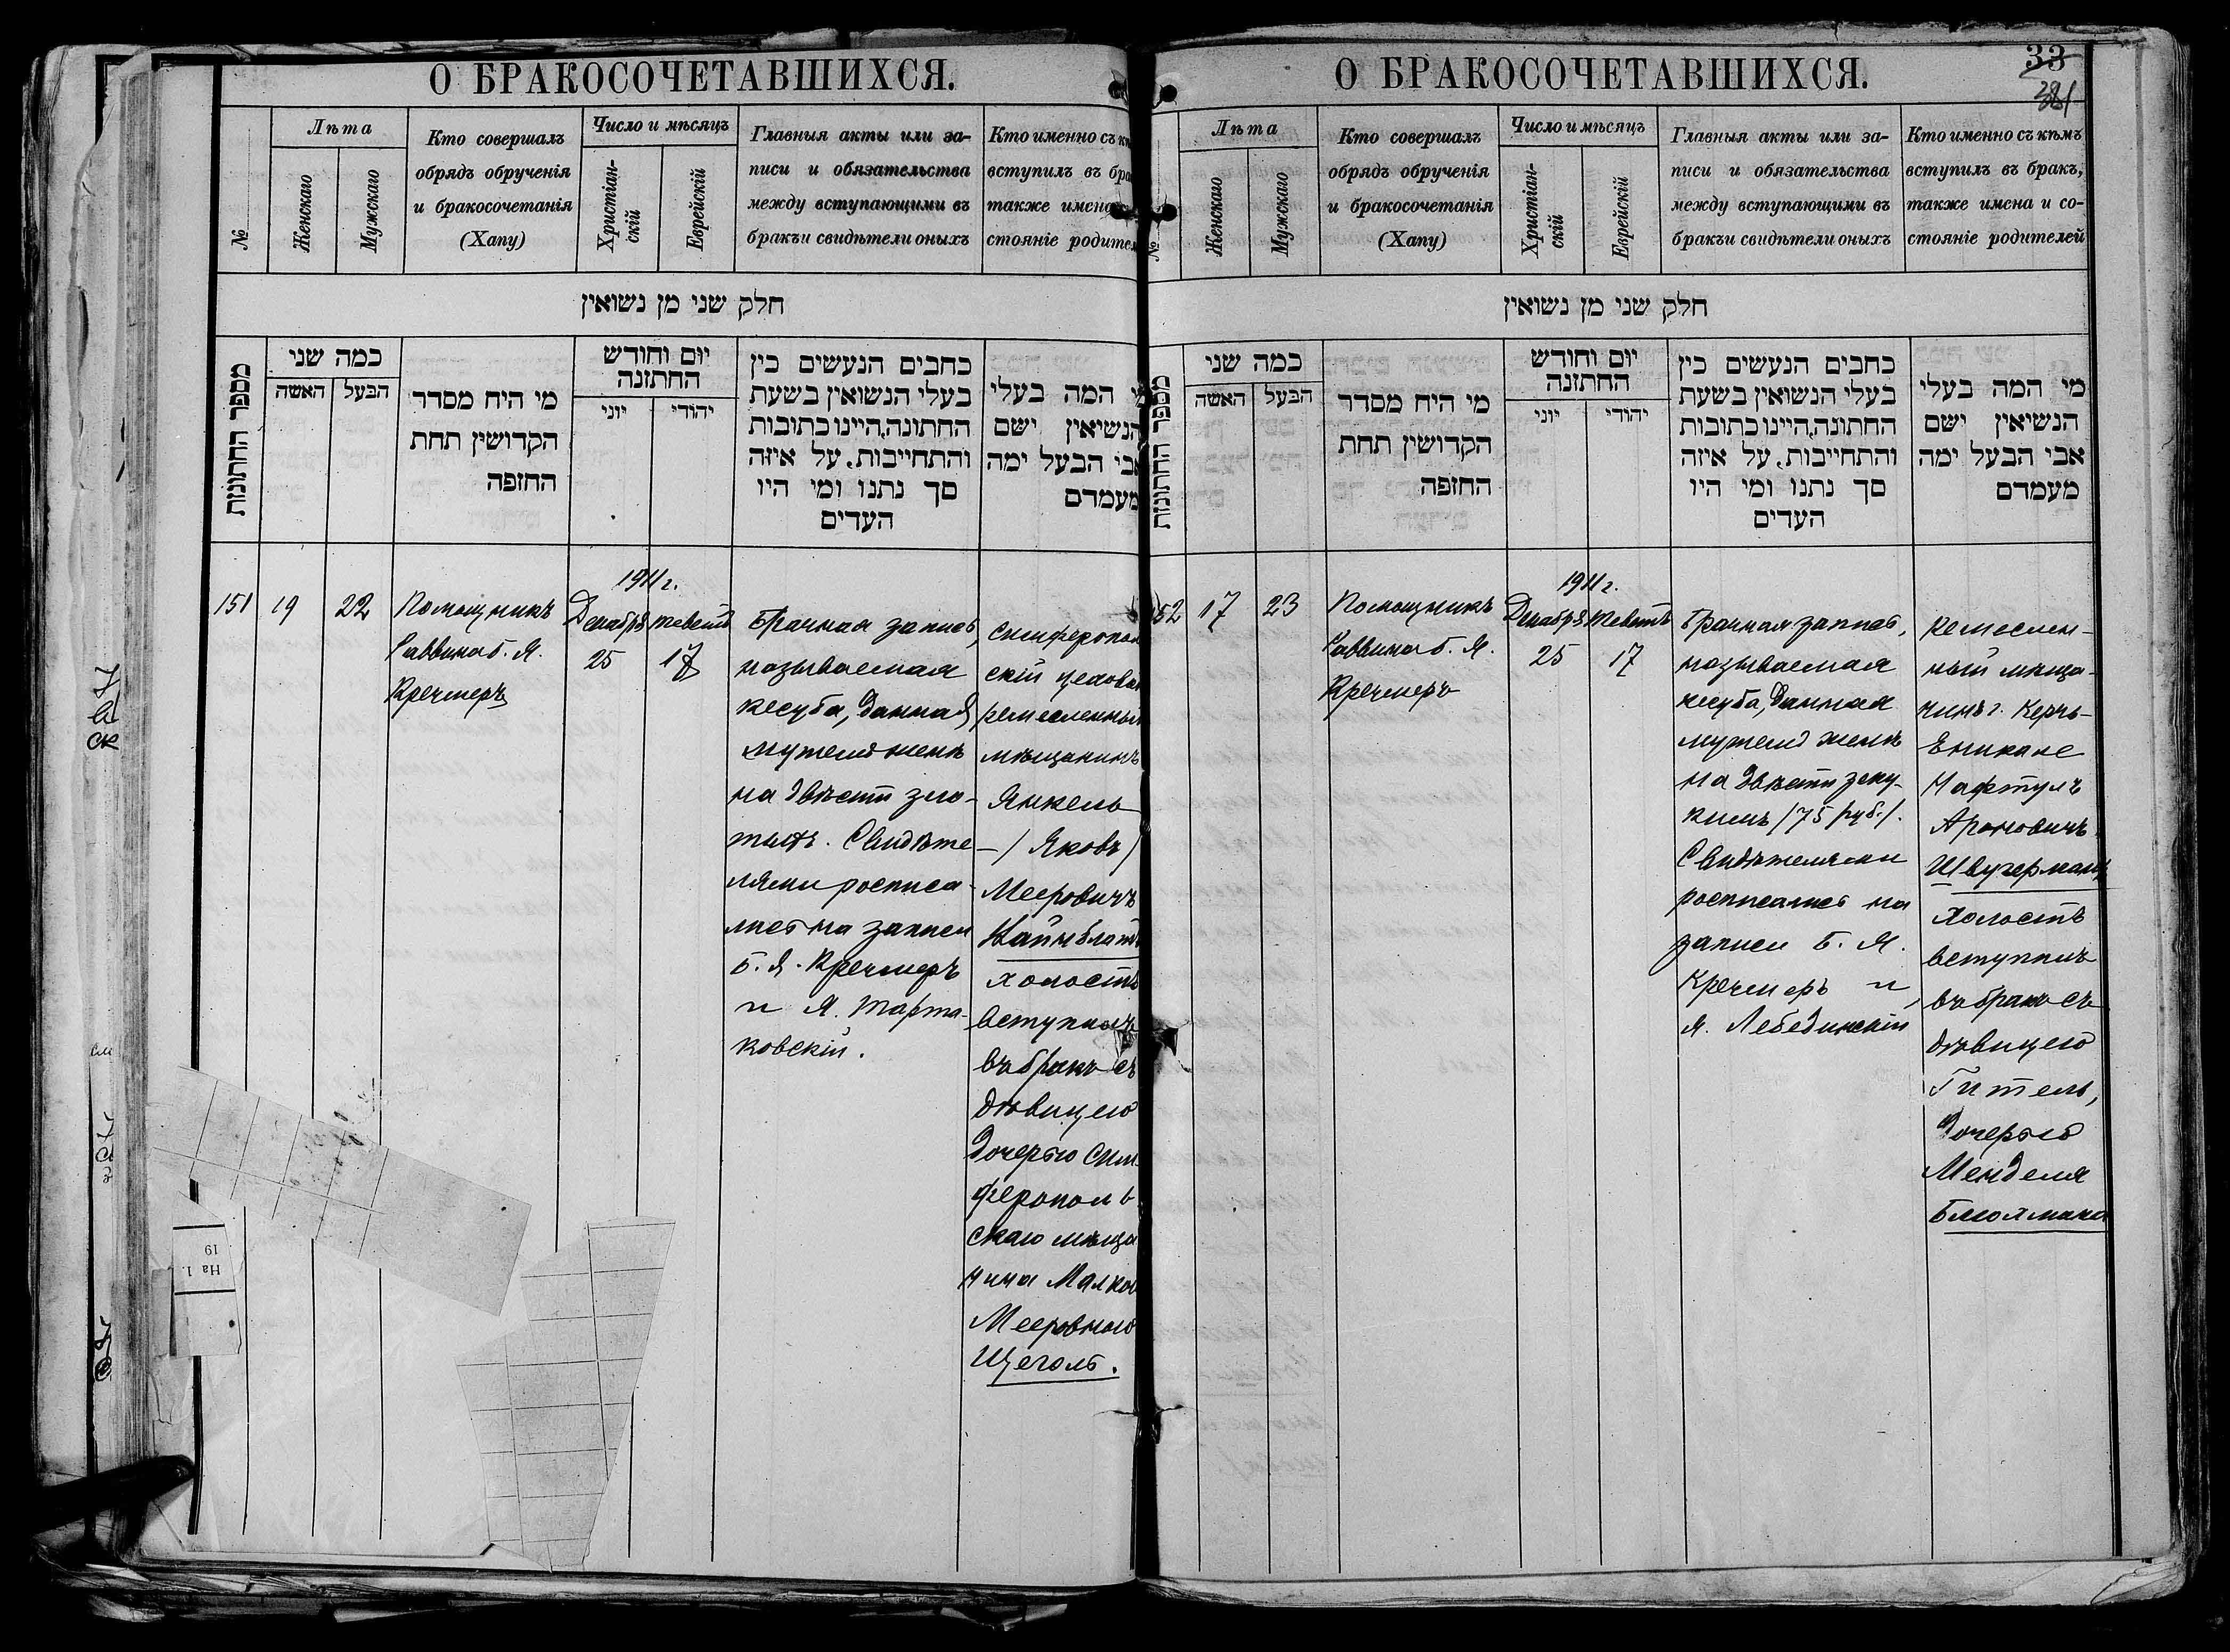 О БРАКОСОЧЕТАВШИХСЯ.
№
Лѣта
Женскаго
Мужскаго
Кто совершалъ
обрядъ обрученія
и бракосочетанія
(Хапу)
Число и мѣсяцъ
Христіан-
скій
Еврейскій
Главныя акты или за-
писи и обязательства
между вступающими въ
бракъи свидѣтели оныхъ
Кто именно съ
вступилъ въ
также имена
стояніе
חלק שני מן נשואין
מספר החתונות
כמה שני
האשה
הבעל
מי היח מסדר
הקדושין תחת
החופה
יום וחודש
החתונה
יוני
יהודי
כחבים הנעשים כין
בעלי הנשואין בשעת
החתונה,היינו כתובות
והתחייבות, על איזה
סך נתנו ומי היו
העדים
המה בעלי
הנשיאין ישם
אבי הבעל ימה
מעמדם
151
19
22
Помощникъ
Раввина б. Я.
Кречмеръ
1911 г.
Декабря
25
Теветъ
17
Брачная запись,
называемая
кесуба, данная
мужемъ женѣ
на двѣсти зло-
тыхъ. Свидѣте-
лями росписа-
лись на записи
Б. Я. Кречмеръ
и Я. Тарта-
ковскій.
Симферополь
скій цеховой
ремесленный
мѣщанинъ
Янкель
-/Яковъ/
Мееровичъ
Вайнблатъ
холостъ
вступилъ
въ бракъ съ
дѣвицею
дочерью Сим
ферополь
скаго мѣща
нина Малкою
Мееровною
Щеголь.
О БРАКОСОЧЕТАВШИХСЯ.
33
381
№
Лѣта
Женскаго
Мужскаго
Кто совершалъ
обрядъ обрученія
и бракосочетанія
(Хапу)
Число и мѣсяцъ
Христіан-
скій
Еврейскій
Главныя акты или за-
писи и обязательства
между вступающими въ
бракъи свидѣтели оныхъ
Кто именно съ кѣмъ
вступилъ въ бракъ,
также имена и со-
стояніе родителей
חלק שני מן נשואין
מספר החתונות
כמה שני
האשה
הבעל
מי היח מסדר
הקדושין תחת
החופה
יום וחודש
החתונה
יוני
יהודי
כחבים הנעשים כין
בעלי הנשואין בשעת
החתונה,היינו כתובות
והתחייבות, על איזה
סך נתנו ומי היו
העדים
מי המה בעלי
הנשיאין ישם
אבי הבעל ימה
מעמדם
52
17
23
Помощникъ
Раввина б. Я.
Кречмеръ
1911 г.
Декабря
25
Теветъ
17
Брачная запись,
называемая
кесуба, данная
мужемъ женѣ
на двѣсти зеку-
кимъ /75 руб./.
Свидѣтелями
росписались на
записи Б. Я.
Кречмеръ и
Я. Лебединскій
Ремеслен-
ный мѣща-
нинъ г. Керчь-
Еникале
Нафтулъ
Ароновичъ
Швугерманъ
холостъ
вступилъ
въ бракъ съ
дѣвицею
Гитель,
дочерью
Менделя
Блюхмана
На 1.
19